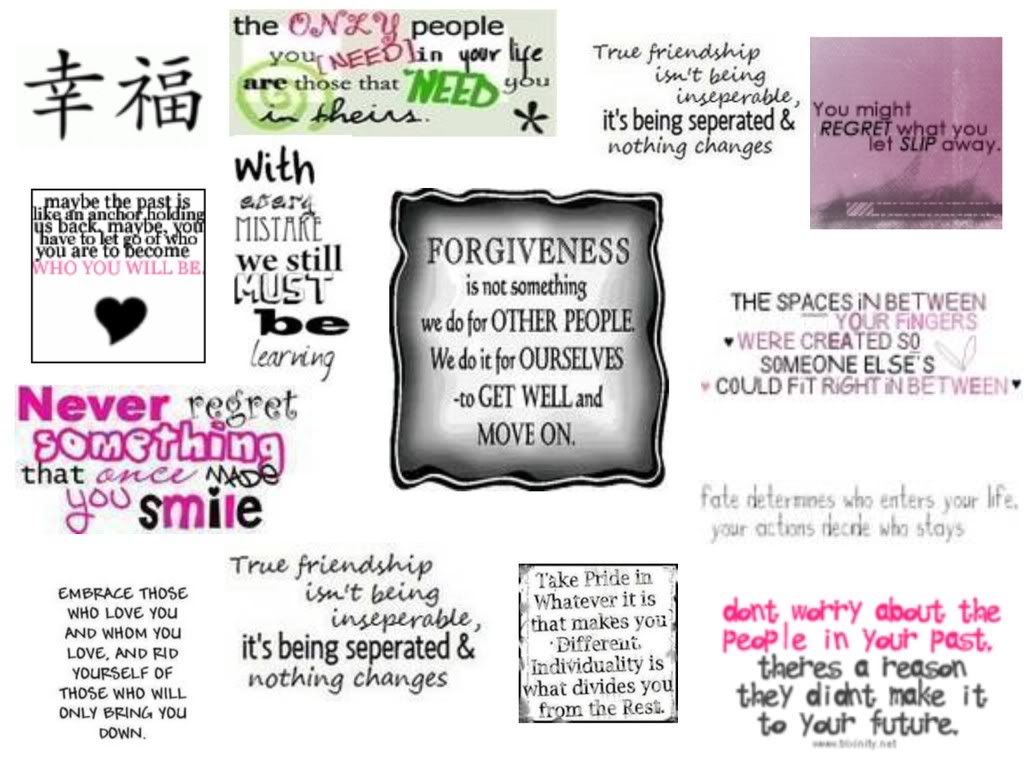 幸福
the ONLY people
you [NEED] in your life
are those that NEED you
in theirs. *
True friendship
isn't being
inseperable,
it's being seperated &
nothing changes
You might
REGRET what you
let SLIP away.
maybe the past is
like an anchor holding
us back. maybe, you
have to let go of who
you are to become
WHO YOU WILL BE.
With
every
MISTAKE
we still
MUST
be
learning
FORGIVENESS
is not something
we do for OTHER PEOPLE.
We do it for OURSELVES
-to GET WELL and
MOVE ON.
THE SPACES iN BETWEEN
YOUR FiNGERS
WERE CREATED SO
SOMEONE ELSE'S
COULD FiT RiGHT iN BETWEEN
Never regret
something
that once MADE
you smile
fate determines who enters your life,
your actions decide who stays
EMBRACE THOSE
WHO LOVE YOU
AND WHOM YOU
LOVE, AND RID
YOURSELF OF
THOSE WHO WILL
ONLY BRING YOU
DOWN.
True friendship
isn't being
inseperable,
it's being seperated &
nothing changes
Take Pride in
Whatever it is
that makes you
Different.
Individuality is
what divides you
from the Rest.
dont worry about the
people in your past.
theres a reason
they didnt make it
to your future.